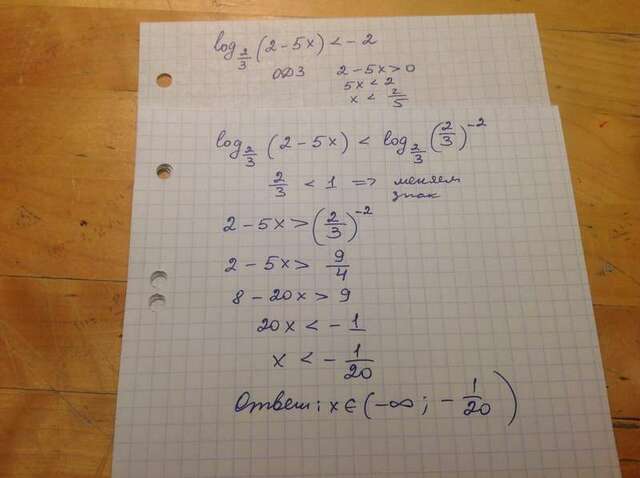 log_{2/3} (2 - 5x) < - 2
ОДЗ 2 - 5x > 0
5x < 2
x < 2/5
log_{2/3} (2 - 5x) < log_{2/3} (2/3)^{-2}
2/3 < 1 => меняем
знак
2 - 5x > (2/3)^{-2}
2 - 5x > 9/4
8 - 20x > 9
20x < - 1
x < - 1/20
Ответ: x ∈ (-∞; - 1/20)